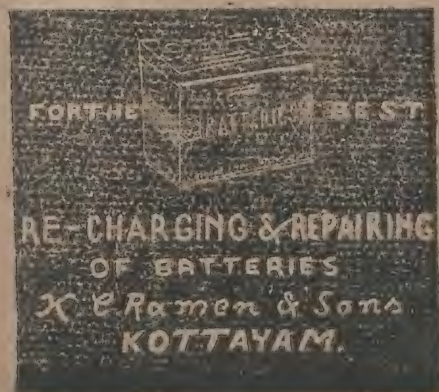 FOR THE BEST
BATTERIES
RE-CHARGING & REPAIRING
OF BATTERIES
K C Ramen & Sons
KOTTAYAM.